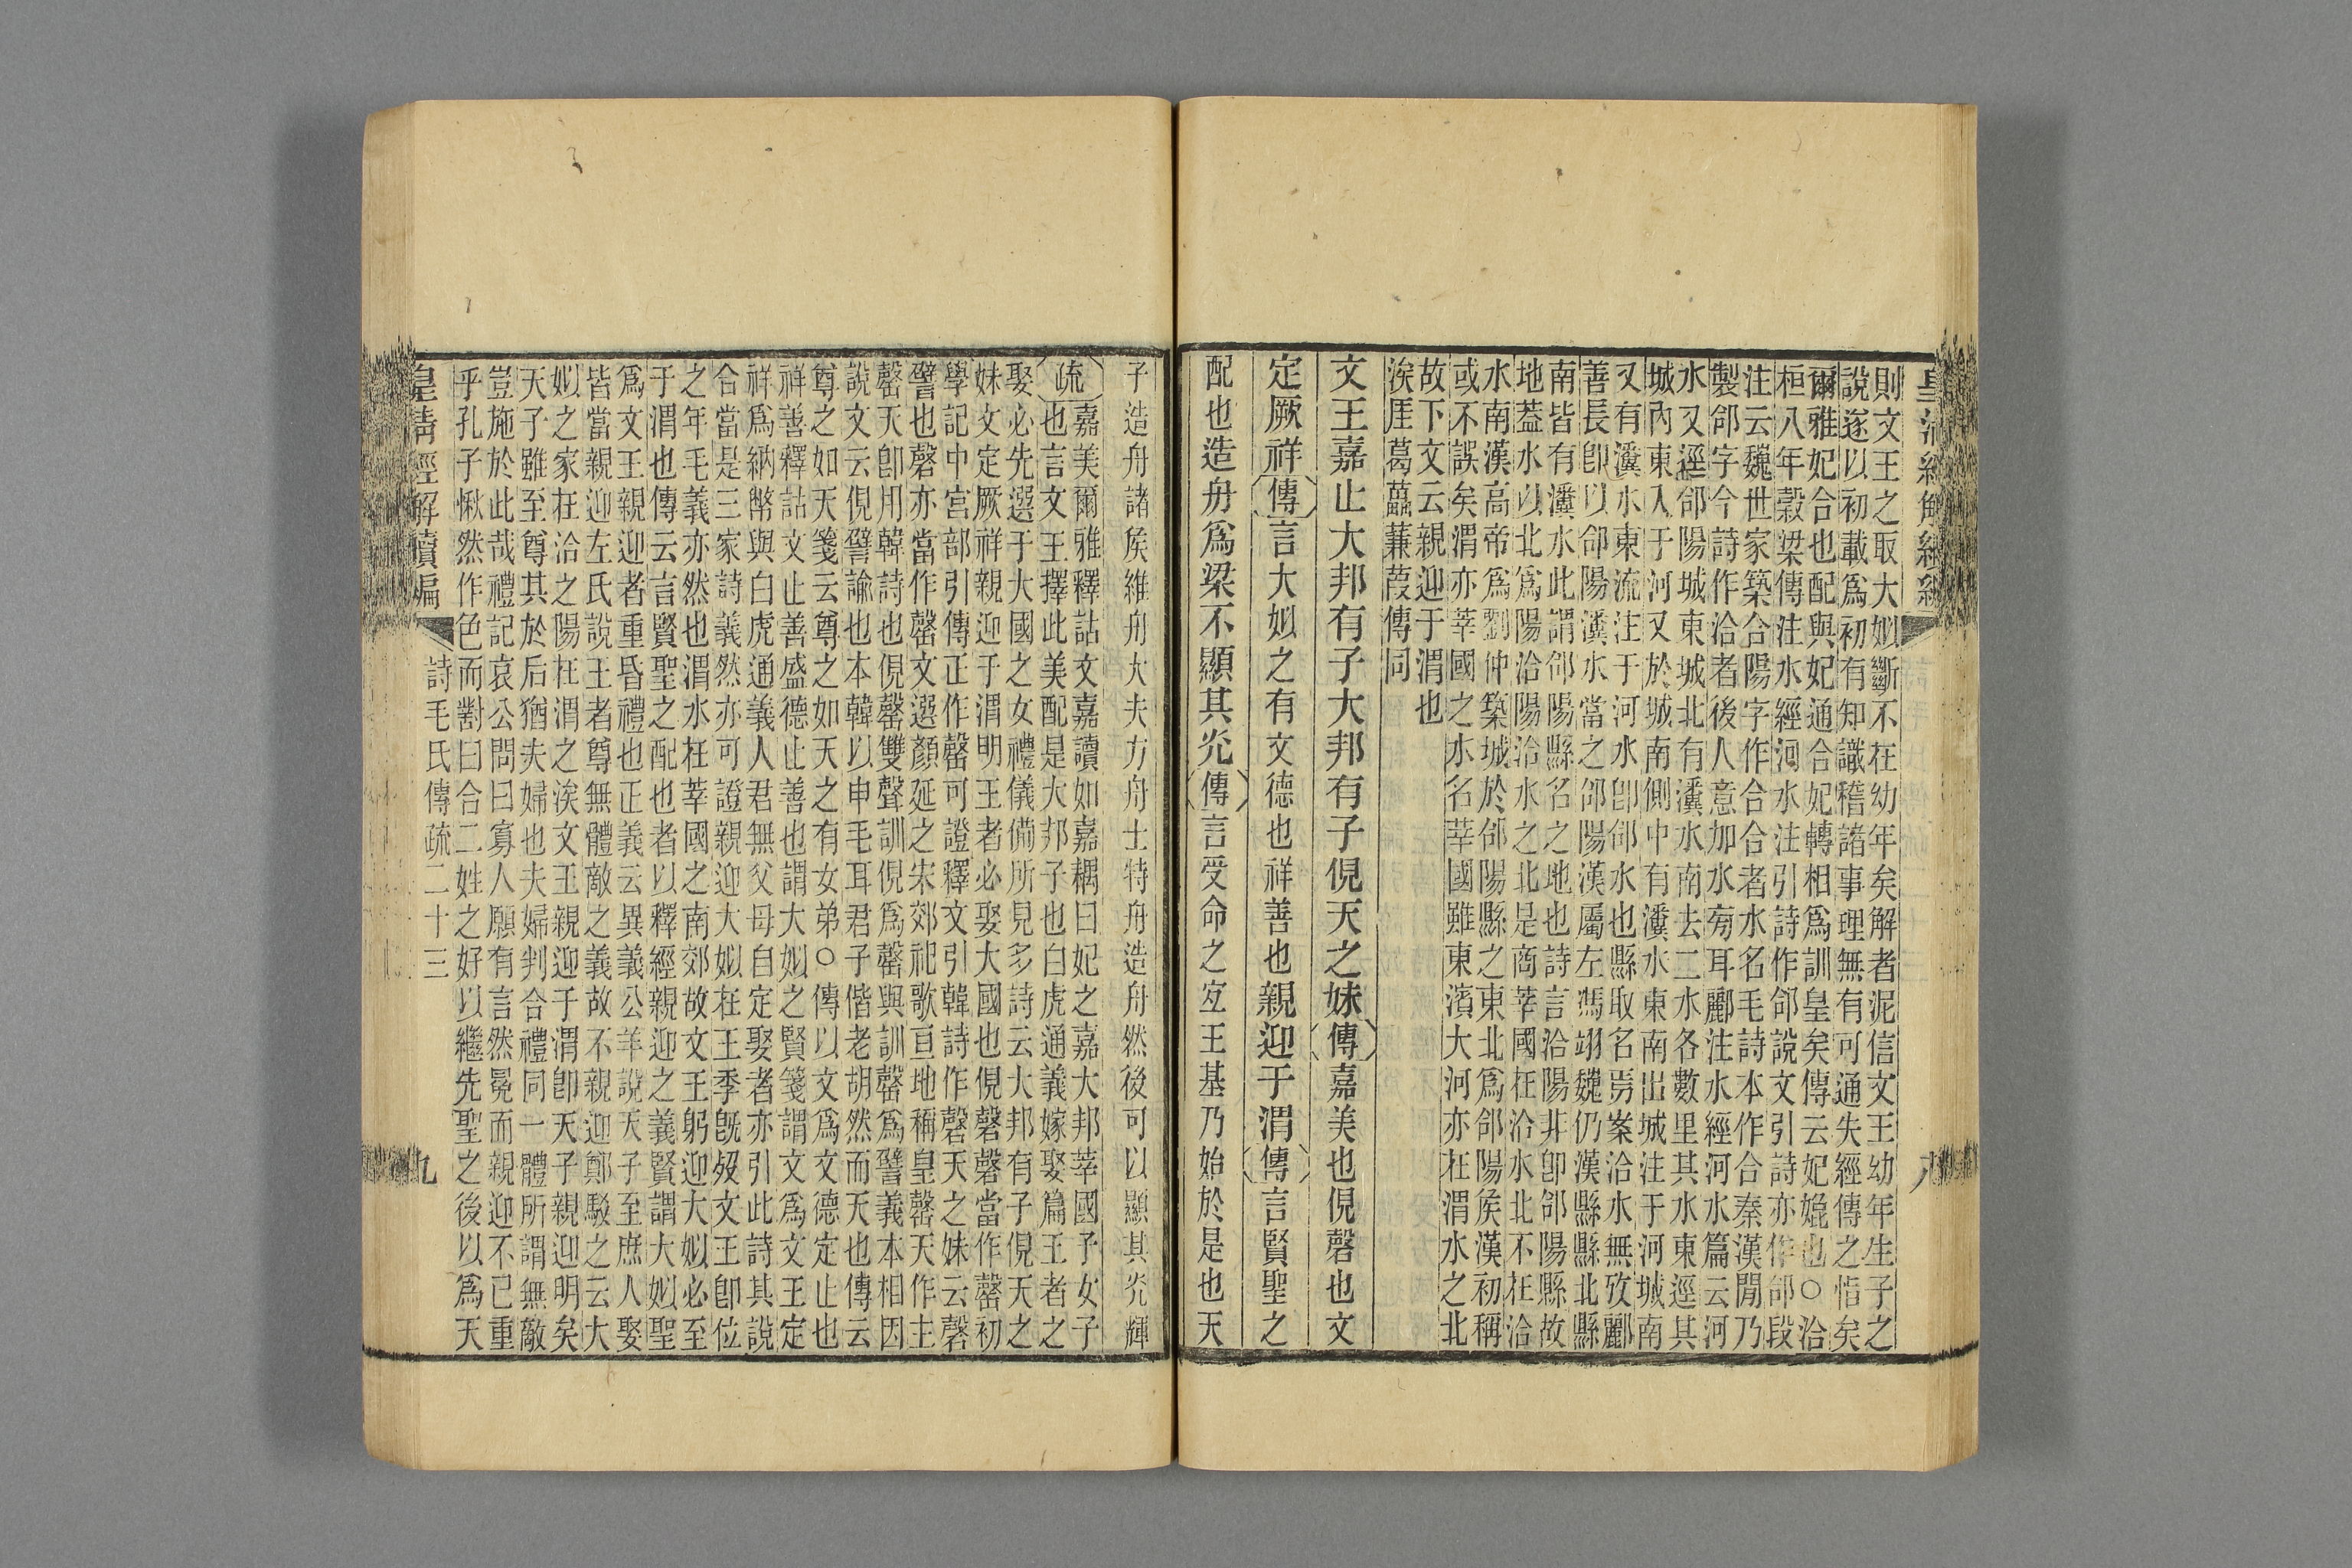 則文王之取大姒斷不在幼年矣解者泥信文王幼年生子之
說遂以初載爲初有知識稽諸事理無有可通失經傳之恉矣
爾雅妃合也配與妃通合妃轉相爲訓皇矣傳云妃媲也○洽
桓八年穀梁傳注水經河水注引詩作郃說文引詩亦作郃段
注云魏世家築合陽字作合合者水名毛詩本作合秦漢閒乃
製郃字今詩作洽者後人意加水旁耳酈注水經河水篇云河
水又逕郃陽城東城北有瀵水南去二水各數里其水東逕其
城內東入于河又於城南側中有瀵水東南出城注于河城南
又有瀵水東流注于河水卽郃水也縣取名焉案洽水無攷酈
善長卽以郃陽瀵水當之郃陽漢屬左馮翊魏仍漢縣縣北縣
南皆有瀵水此謂郃陽縣名之地也詩言洽陽非卽郃陽縣故
地葢水以北爲陽洽陽洽水之北是商莘國在洽水北不在洽
水南漢高帝爲劉仲築城於郃陽縣之東北爲郃陽侯漢初稱
或不誤矣渭亦莘國之水名莘國雖東濱大河亦在渭水之北
故下文云親迎于渭也
涘厓葛藟蒹葭傳同
文王嘉止大邦有子大邦有子俔天之妹傳嘉美也俔磬也文
定厥祥傳言大姒之有文德也祥善也親迎于渭傳言賢聖之
配也造舟爲梁不顯其光傳言受命之宐王基乃始於是也天
子造舟諸侯維舟大夫方舟士特舟造舟然後可以顯其光輝
疏嘉美爾雅釋詁文嘉讀如嘉耦曰妃之嘉大邦莘國子女子
也言文王擇此美配是大邦子也白虎通義嫁娶篇王者之
娶必先選于大國之女禮儀備所見多詩云大邦有子俔天之
妹文定厥祥親迎于渭明王者必娶大國也俔磬磬當作罄初
學記中宮部引傳正作罄可證釋文引韓詩作磬天之妹云磬
譬也磬亦當作罄文選顏延之宋郊祀歌亘地稱皇罄天作主
罄天卽用韓詩也俔罄雙聲訓俔爲罄與訓罄爲譬義本相因
說文云俔譬諭也本韓以申毛耳君子偕老胡然而天也傳云
尊之如天箋云尊之如天之有女弟○傳以文爲文德定止也
祥善釋詁文止善盛德止善也謂大姒之賢箋謂文爲文王定
祥爲納幣與白虎通義人君無父母自定娶者亦引此詩其說
合當是三家詩義然亦可證親迎大姒在王季旣歿文王卽位
之年毛義亦然也渭水在莘國之南郊故文王躬迎大姒必至
于渭也傳云言賢聖之配也者以釋經親迎之義賢謂大姒聖
爲文王親迎者重昏禮也正義云異義公羊說天子至庶人娶
皆當親迎左氏說王者尊無體敵之義故不親迎鄭駁之云大
姒之家在洽之陽在渭之涘文王親迎于渭卽天子親迎明矣
天子雖至尊其於后猶夫婦也夫婦判合禮同一體所謂無敵
豈施於此哉禮記哀公問曰寡人願有言然冕而親迎不已重
乎孔子愀然作色而對曰合二姓之好以繼先聖之後以爲天
皇清經解續編
詩毛氏傳疏二十三
九